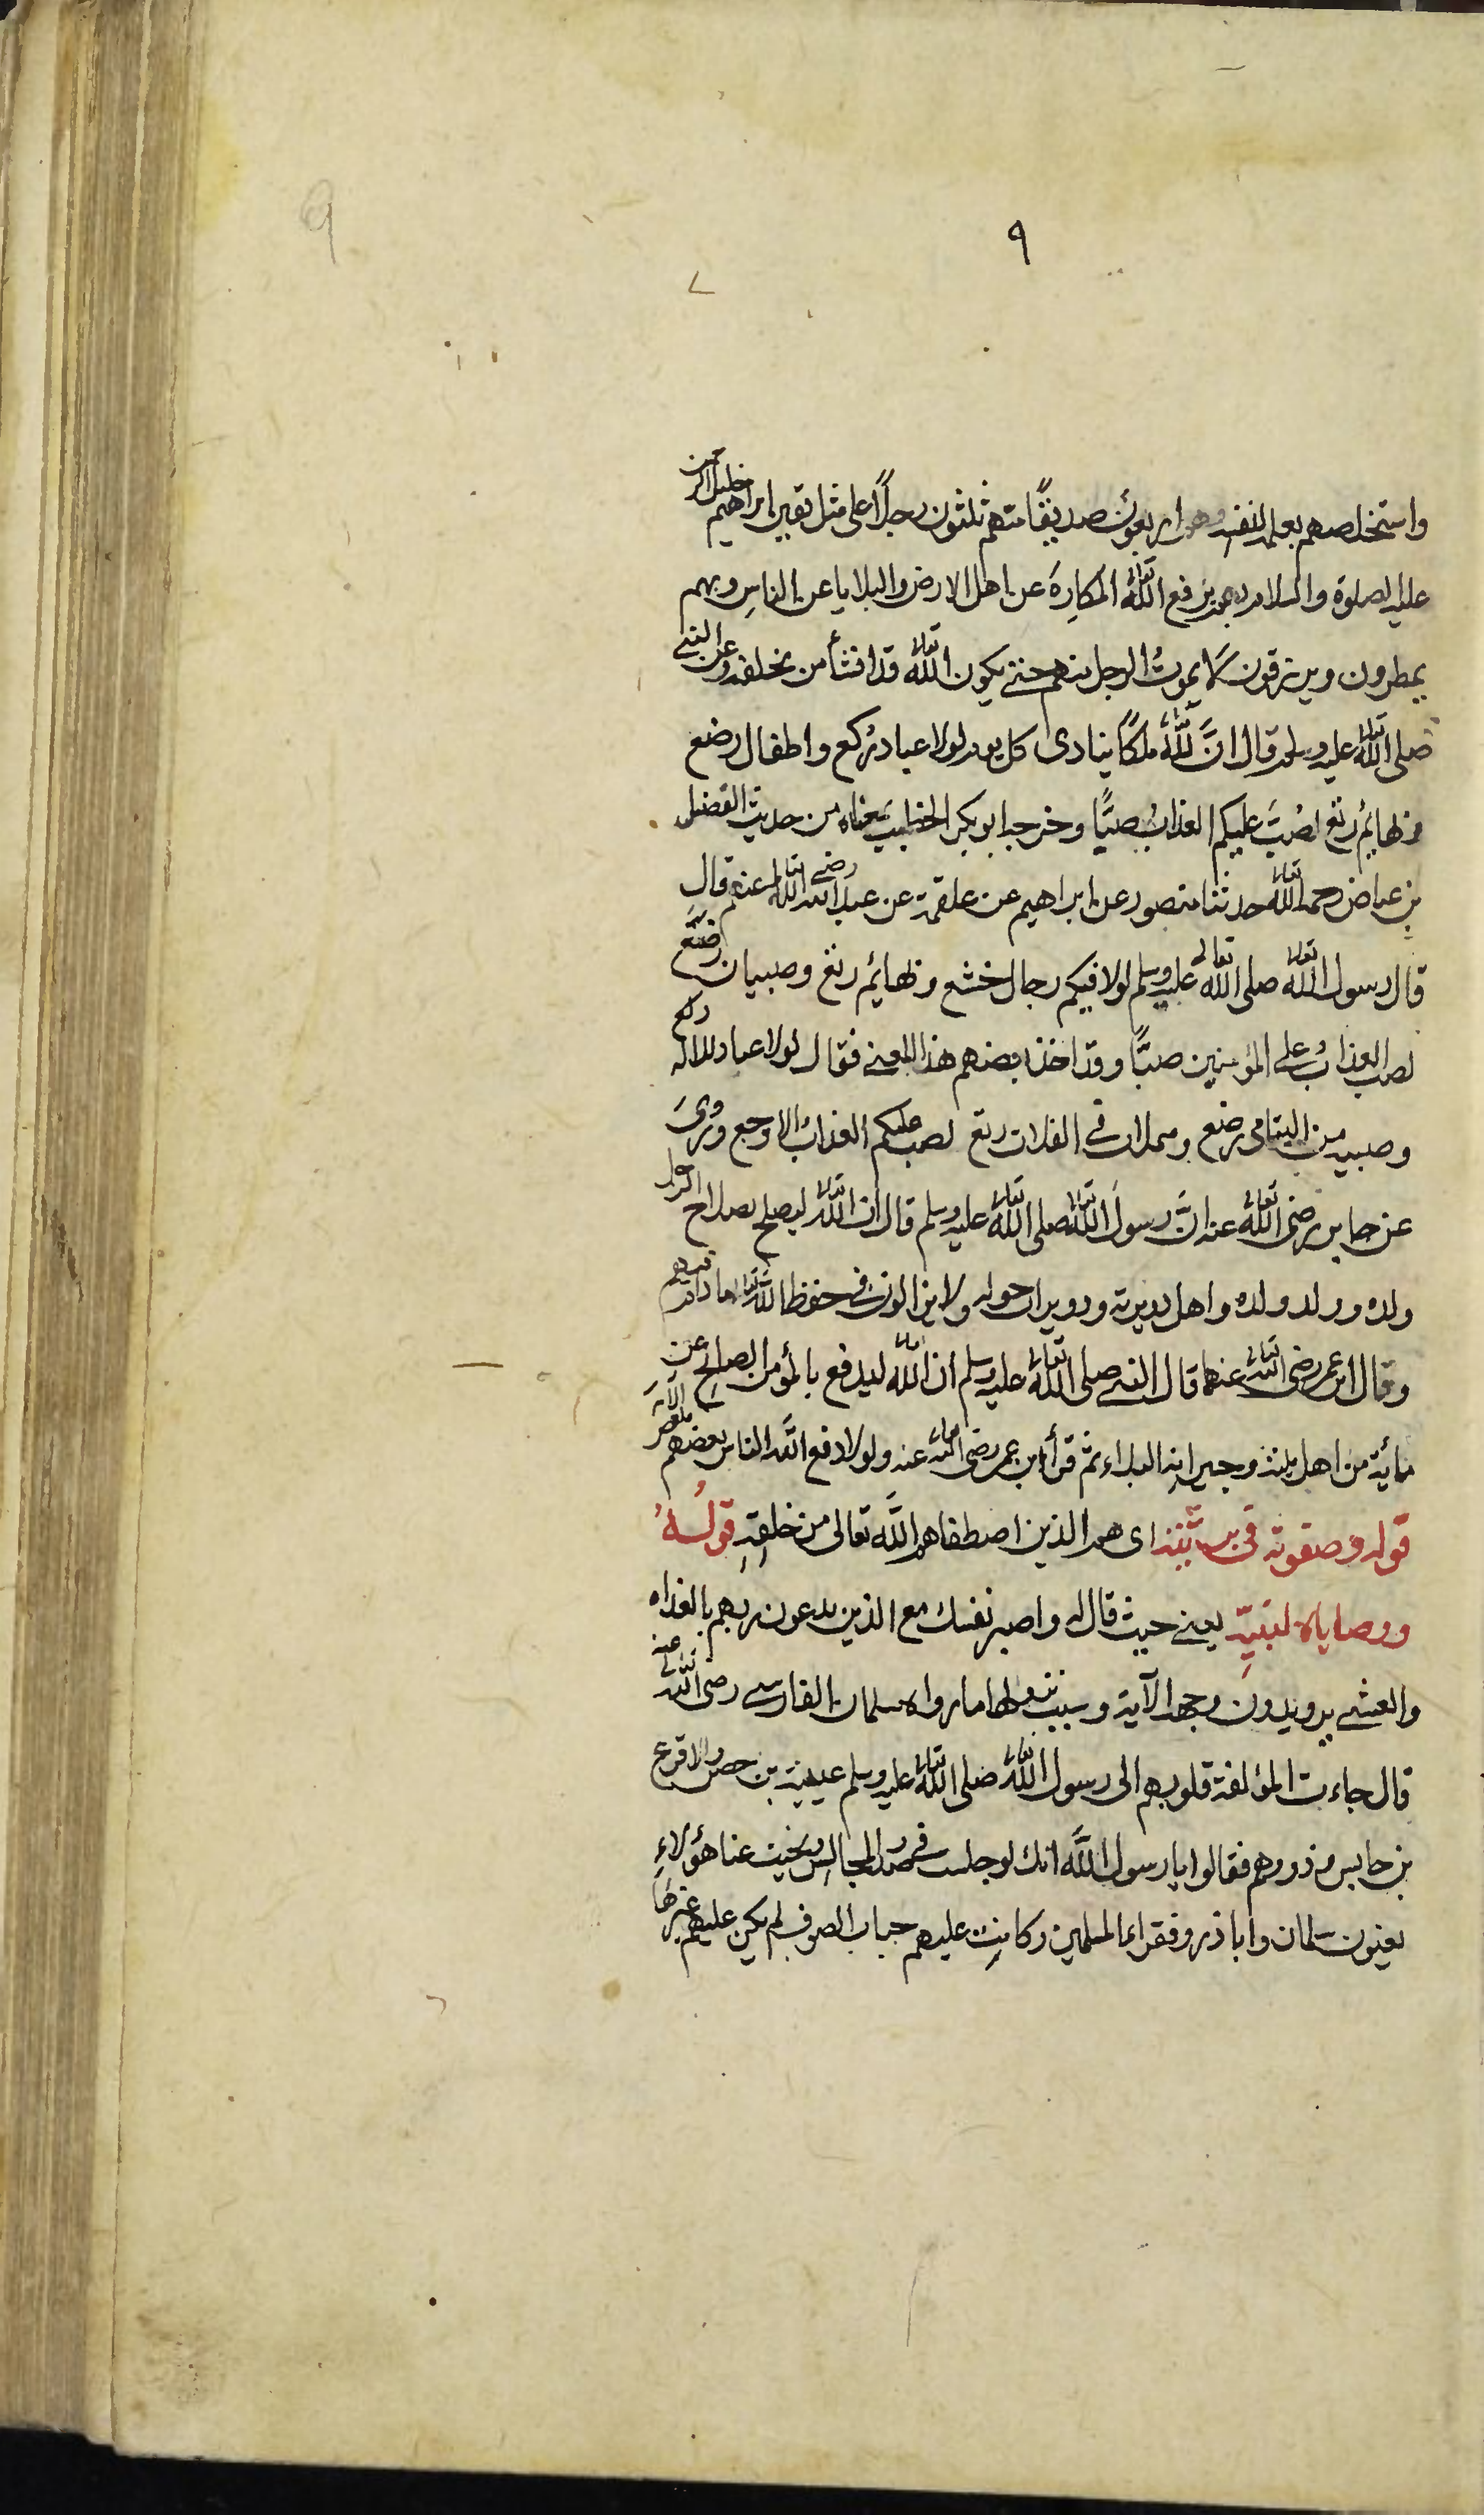 ٩
واستخلصهم بعلمه لنفسه وهم اربعون صديقًا منهم ثلثون رجلًا على مثل يقين ابراهيم خليل الرحمن
عليه الصلوة والسلام بهم يرفع الله تعالى المكارِهَ عن اهل الارض والبلايا عن الناسِ وبهم
يمطرون ويرزقون لا يموتُ الرجل منهم حتى يكون الله تعالى قد انشأ من يخلفه وعن النبي
صلى الله تعالى عليه وسلم قال انَّ لله تعالى ملكًا ينادى كل يوم لولا عباد رُكع واطفال رضع
وبهايمُ رتع لصُبَّ عليكم العذابُ صبًّا وخرجه ابو بكر الخطيب بمعناه من حديث الفضيل
بن عياض رحمه الله تعالى حدثنا منصور عن ابراهيم عن علقمة عن عبد الله رضي الله تعالى عنه قال
قال رسول الله تعالى صلى الله تعالى عليه وسلم لولا فيكم رجال خشع وبهايُم رتع وصبيان رضَّع
لصب العذابُ على المؤمنين صبًّا وقد اخذ بعضهم هذا المعنى فقال لولا عباد للاله ركع
وصبيه من اليتامى رضع ومهملات في الفلات رتع لصب عليكم العذابُ الاوجع ورُوىَ
عن جابر رضى الله تعالى عنه انَّ رسولَ الله تعالى صلى الله تعالى عليه وسلم قال ان الله تعالى ليصلح بصلاح الرجل
ولده وولد ولده واهل دويرته ودويرات حوله ولا يزالون في حفظ الله تعالى ما دام فيهم
وقال ابن عمر رضى الله تعالى عنهما قال النبي صلى الله تعالى عليه وسلم ان الله تعالى ليدفع بالمؤمن الصالح عن
مأية من اهل بيته وجيرانه البلاء ثم قرأ ابن عمر رضى الله تعالى عنه ولولا دفع الله الناس بعضهم ببعض الآية
قوله وصفوته في بريَّتِه اى هم الذين اصطفاهم الله تعالى من خلقِهِ قولُهُ
ووصاياه لنبيّهِ يعنى حيث قال له واصبر نفسك مع الذين يدعون ربهم بالغداه
والعشي يريدون وجهه الآية وسبب نزولها ما رواه سلمان الفارسي رضى الله تعالى عنه
قال جاءت المؤلفة قلوبهم الى رسول الله تعالى صلى الله تعالى عليه وسلم عيينة بن حصن والاقرع
بن حابس وذووهم فقالوا يا رسول الله انك لو جلست في صدر المجالس ونحيت عنا هؤلاءِ
يعنون سلمان وابا ذر وفقراء المسلمين وكانت عليهم جباب الصوف لم يكن عليهم غيرها